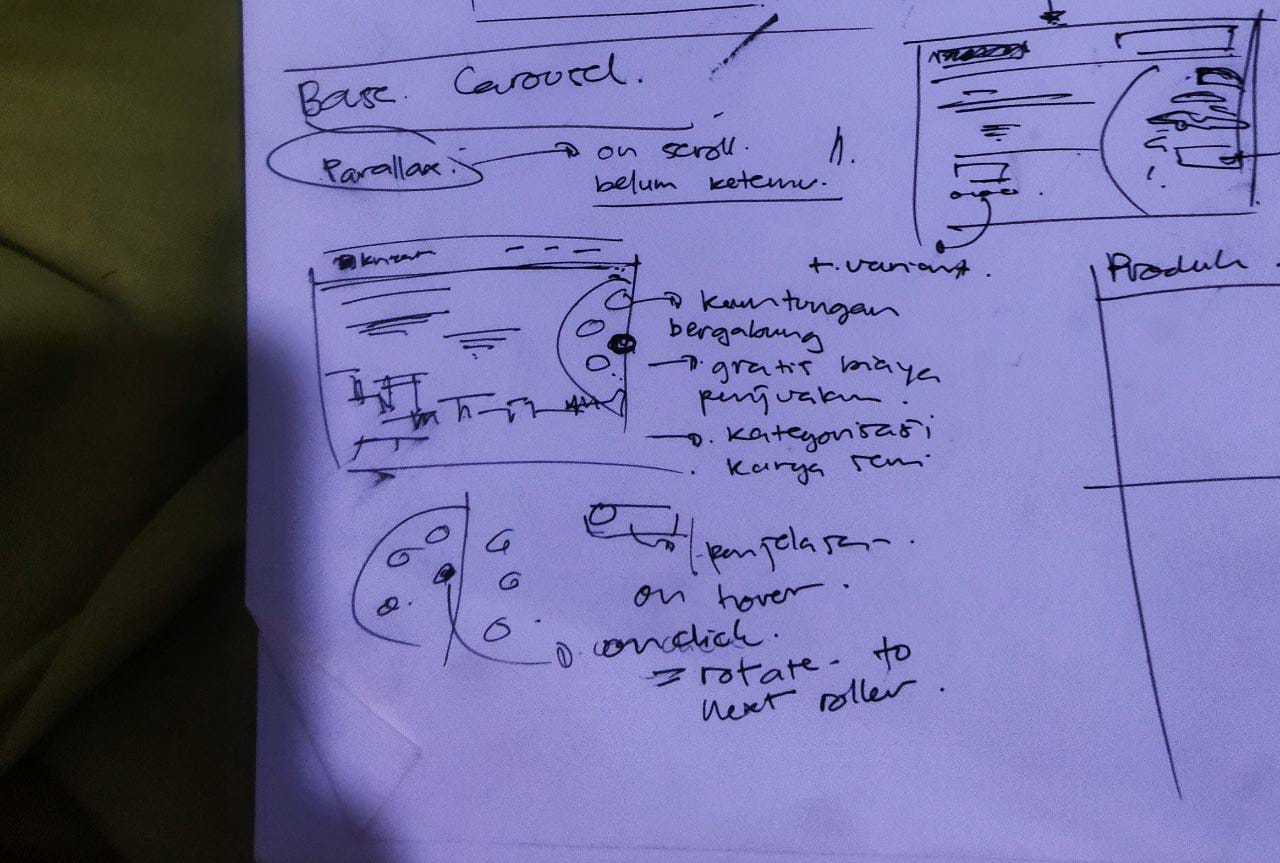 Base Carousel.
Parallax
on scroll.
belum ketemu.
+ variant.
keuntungan
bergabung
gratis biaya
penjualan.
kategorisasi
karya seni
penjelasan
on hover.
onclick.
= rotate to
next roller.
Produk